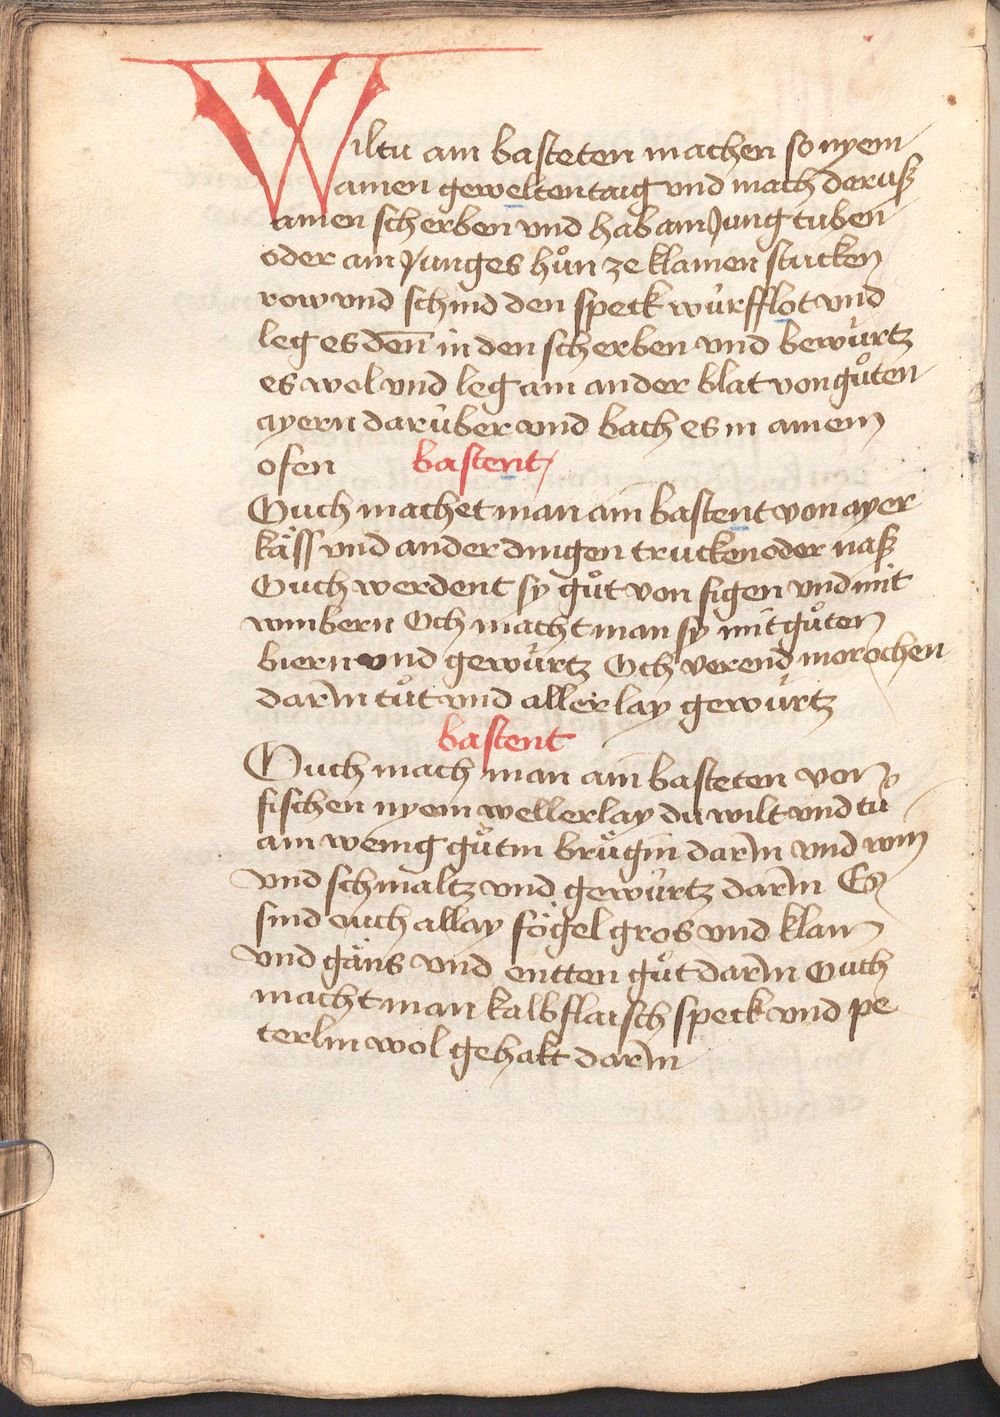 Wiltu ain basteten machen so nyem
ainen gewelten taig vnd mach daruß
ainen scherben vnd hab ain Jung tuben
oder ain Junges hůn ze klainen stucken
row vnd schnid den speck würfflot vnd
leg es den̄ in den scherben vnd bewürtz
es wol vnd leg ain ander blat von gůten
ayern darüber vnd bach es in ainem
ofen bastent
Ouch machet man ain bastent von ayer
käss vnd ander dingen trucken oder naß
Ouch werdent sy gůt von figen vnd mit
winbern Och macht man sy mit gůten
biern vnd gewürtz Och verend morochen
dar̄in tůt vnd aller lay gewürtz
bastent
Ouch mach man ain basteten von
fischen nyem wellerlay du wilt vnd tů
ain wenig gůtin brügin dar̄in vnd win
vnd schmaltz vnd gewürtz dar̄in Es
sind ouch allay fögel gros vnd klain
vnd gäns vnd entten gůt dar̄in Ouch
macht man kalbflaisch speck vnd pe
terlin wol gehakt dar̄in